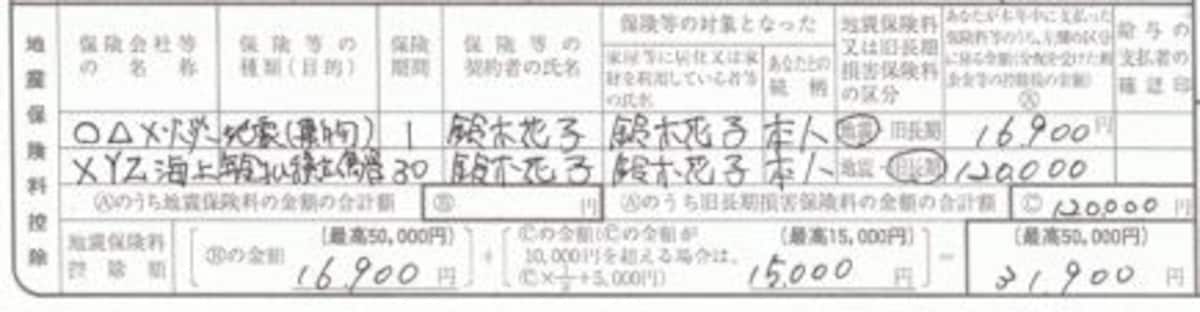 地震保険料控除
保険会社等の名称
保険等の種類(目的)
保険期間
保険等の契約者の氏名
保険等の対象となった
家屋等に居住又は家財を利用している者等の氏名
あなたとの続柄
地震保険料又は旧長期損害保険料の区分
あなたが本年中に支払った保険料等のうち、左欄の区分に係る金額(分配を受けた剰余金等の控除後の金額)
Ⓐ
給与の支払者の確認印
○△×火災 地震(建物) 1 鈴木花子 鈴木花子 本人 地震 旧長期 16,900円
XYZ海上 積立傷害 30 鈴木花子 鈴木花子 本人 地震・旧長期 120,000
Ⓐのうち地震保険料の金額の合計額 Ⓑ 円 Ⓐのうち旧長期損害保険料の金額の合計額 Ⓒ 120,000 円
地震保険料控除額
Ⓑの金額 (最高50,000円) 16,900 円
+
Ⓒの金額(Ⓒの金額が10,000円を超える場合は、Ⓒ×1/2+5,000円) (最高15,000円) 15,000 円
=
(最高50,000円) 31,900 円